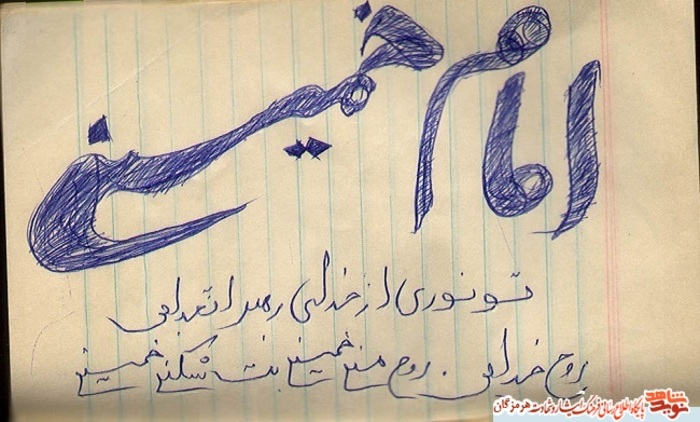 امام خمینی
تو نوری از خدایی رهبر انقلابی
روح خدایی . روح منی خمینی بت شکنی خمینی
نوید شاهد پایگاه اطلاع رسانی فرهنگ ایثار و شهادت هرمزگان